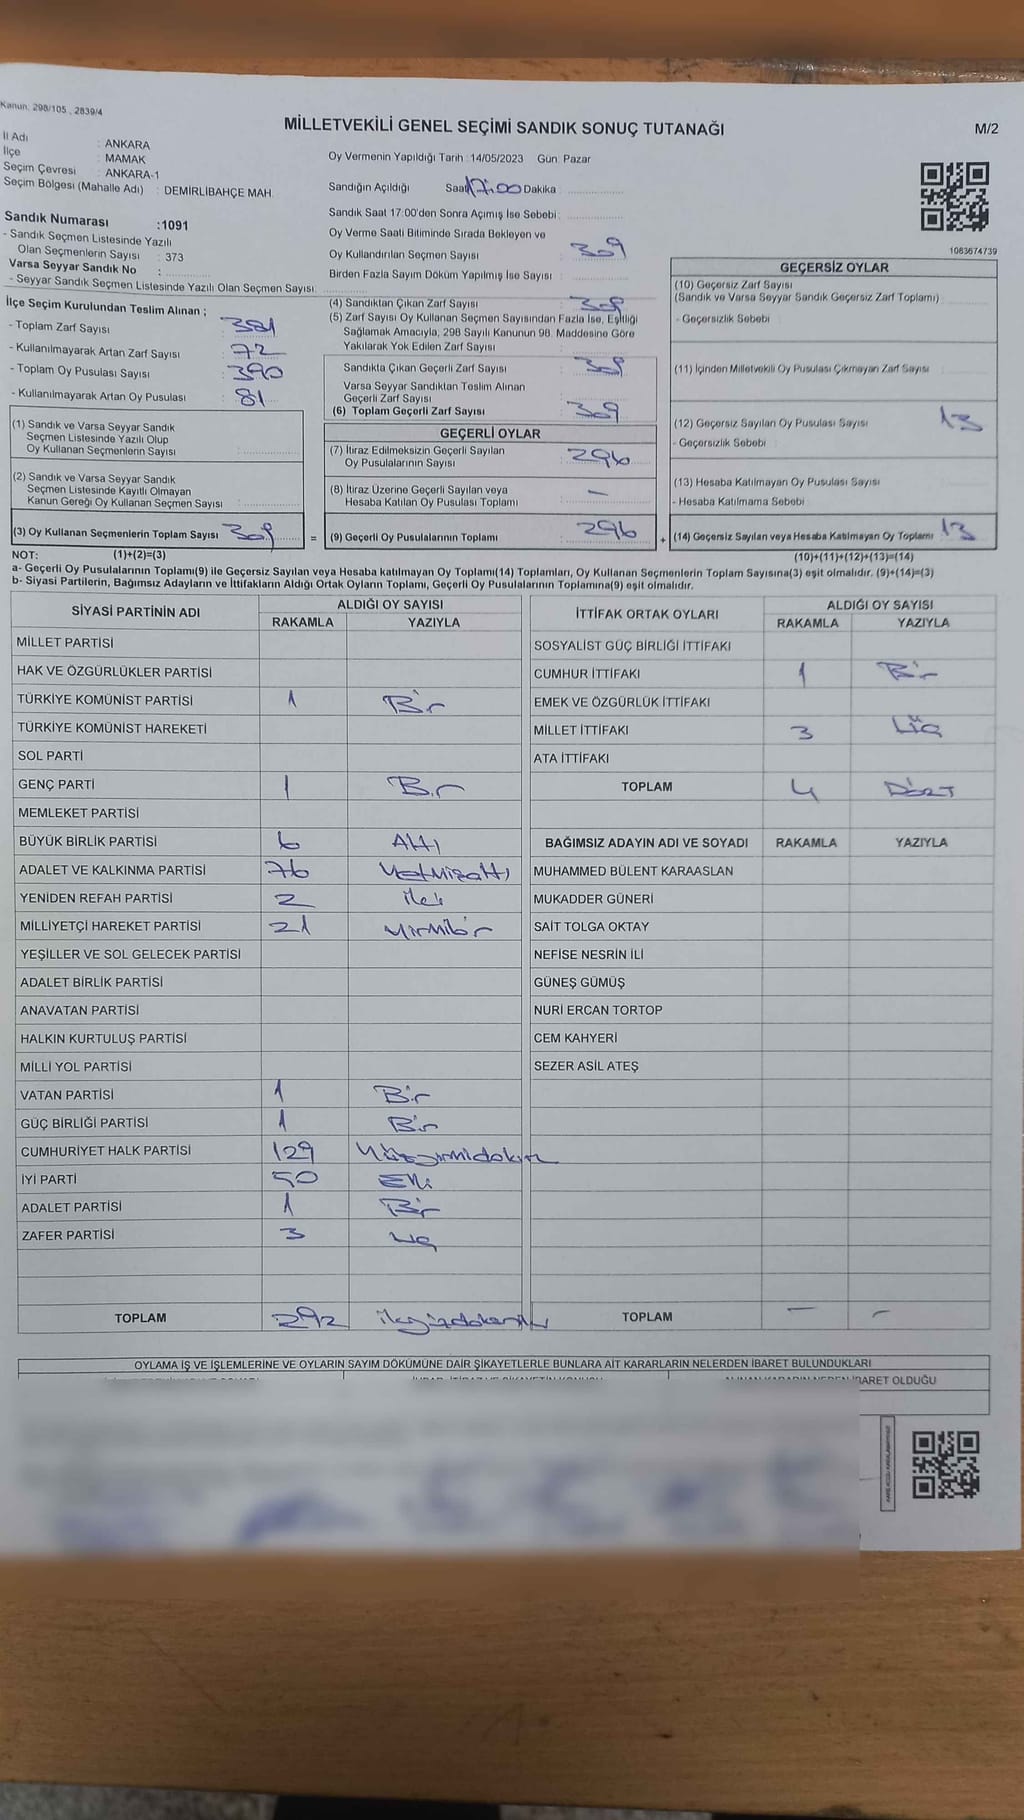 Kanun: 298/105 , 2839/4
MİLLETVEKİLİ GENEL SEÇİMİ SANDIK SONUÇ TUTANAĞI
M/2
İl Adı : ANKARA
İlçe : MAMAK
Seçim Çevresi : ANKARA-1
Seçim Bölgesi (Mahalle Adı) : DEMİRLİBAHÇE MAH.
Sandık Numarası :1091
- Sandık Seçmen Listesinde Yazılı
Olan Seçmenlerin Sayısı : 373
Varsa Seyyar Sandık No :
- Seyyar Sandık Seçmen Listesinde Yazılı Olan Seçmen Sayısı:
Oy Vermenin Yapıldığı Tarih :14/05/2023 Gün: Pazar
Sandığın Açıldığı Saat 17:00 Dakika
Sandık Saat 17:00'den Sonra Açımış İse Sebebi:
Oy Verme Saati Bitiminde Sırada Bekleyen ve
Oy Kullandırılan Seçmen Sayısı : 309
Birden Fazla Sayım Döküm Yapılmış İse Sayısı :
İlçe Seçim Kurulundan Teslim Alınan ;
- Toplam Zarf Sayısı : 381
- Kullanılmayarak Artan Zarf Sayısı : 72
- Toplam Oy Pusulası Sayısı : 390
- Kullanılmayarak Artan Oy Pusulası : 81
(1) Sandık ve Varsa Seyyar Sandık
Seçmen Listesinde Yazılı Olup
Oy Kullanan Seçmenlerin Sayısı :
(2) Sandık ve Varsa Seyyar Sandık
Seçmen Listesinde Kayıtlı Olmayan
Kanun Gereği Oy Kullanan Seçmen Sayısı :
(3) Oy Kullanan Seçmenlerin Toplam Sayısı 309
(4) Sandıktan Çıkan Zarf Sayısı : 309
(5) Zarf Sayısı Oy Kullanan Seçmen Sayısından Fazla İse, Eşitliği
Sağlamak Amacıyla, 298 Sayılı Kanunun 98. Maddesine Göre
Yakılarak Yok Edilen Zarf Sayısı :
Sandıkta Çıkan Geçerli Zarf Sayısı : 309
Varsa Seyyar Sandıktan Teslim Alınan
Geçerli Zarf Sayısı :
(6) Toplam Geçerli Zarf Sayısı : 309
GEÇERLİ OYLAR
(7) İtiraz Edilmeksizin Geçerli Sayılan
Oy Pusulalarının Sayısı : 296
(8) İtiraz Üzerine Geçerli Sayılan veya
Hesaba Katılan Oy Pusulası Toplamı : –
= (9) Geçerli Oy Pusulalarının Toplamı : 296
1083674739
GEÇERSİZ OYLAR
(10) Geçersiz Zarf Sayısı
(Sandık ve Varsa Seyyar Sandık Geçersiz Zarf Toplamı) :
- Geçersizlik Sebebi :
(11) İçinden Milletvekili Oy Pusulası Çıkmayan Zarf Sayısı
(12) Geçersiz Sayılan Oy Pusulası Sayısı : 13
- Geçersizlik Sebebi :
(13) Hesaba Katılmayan Oy Pusulası Sayısı :
- Hesaba Katılmama Sebebi :
+ (14) Geçersiz Sayılan veya Hesaba Katılmayan Oy Toplamı : 13
NOT: (1)+(2)=(3) (10)+(11)+(12)+(13)=(14)
a- Geçerli Oy Pusulalarının Toplamı(9) ile Geçersiz Sayılan veya Hesaba katılmayan Oy Toplamı(14) Toplamları, Oy Kullanan Seçmenlerin Toplam Sayısına(3) eşit olmalıdır. (9)+(14)=(3)
b- Siyasi Partilerin, Bağımsız Adayların ve İttifakların Aldığı Ortak Oyların Toplamı, Geçerli Oy Pusulalarının Toplamına(9) eşit olmalıdır.
SİYASİ PARTİNİN ADI ALDIĞI OY SAYISI
RAKAMLA YAZIYLA
MİLLET PARTİSİ
HAK VE ÖZGÜRLÜKLER PARTİSİ
TÜRKİYE KOMÜNİST PARTİSİ 1 Bir
TÜRKİYE KOMÜNİST HAREKETİ
SOL PARTİ
GENÇ PARTİ 1 Bir
MEMLEKET PARTİSİ
BÜYÜK BİRLİK PARTİSİ 6 Altı
ADALET VE KALKINMA PARTİSİ 76 Yetmişaltı
YENİDEN REFAH PARTİSİ 2 İki
MİLLİYETÇİ HAREKET PARTİSİ 21 Yirmibir
YEŞİLLER VE SOL GELECEK PARTİSİ
ADALET BİRLİK PARTİSİ
ANAVATAN PARTİSİ
HALKIN KURTULUŞ PARTİSİ
MİLLİ YOL PARTİSİ
VATAN PARTİSİ 1 Bir
GÜÇ BİRLİĞİ PARTİSİ 1 Bir
CUMHURİYET HALK PARTİSİ 129 Yüzyirmidokuz
İYİ PARTİ 50 Elli
ADALET PARTİSİ 1 Bir
ZAFER PARTİSİ 3 Üç
TOPLAM 292 ikiyüzdoksaniki
İTTİFAK ORTAK OYLARI ALDIĞI OY SAYISI
RAKAMLA YAZIYLA
SOSYALİST GÜÇ BİRLİĞİ İTTİFAKI
CUMHUR İTTİFAKI 1 Bir
EMEK VE ÖZGÜRLÜK İTTİFAKI
MİLLET İTTİFAKI 3 Üç
ATA İTTİFAKI
TOPLAM 4 Dört
BAĞIMSIZ ADAYIN ADI VE SOYADI RAKAMLA YAZIYLA
MUHAMMED BÜLENT KARAASLAN
MUKADDER GÜNERİ
SAİT TOLGA OKTAY
NEFİSE NESRİN İLİ
GÜNEŞ GÜMÜŞ
NURİ ERCAN TORTOP
CEM KAHYERİ
SEZER ASİL ATEŞ
TOPLAM – –
OYLAMA İŞ VE İŞLEMLERİNE VE OYLARIN SAYIM DÖKÜMÜNE DAİR ŞİKAYETLERLE BUNLARA AİT KARARLARIN NELERDEN İBARET BULUNDUKLARI
İBARET OLDUĞU